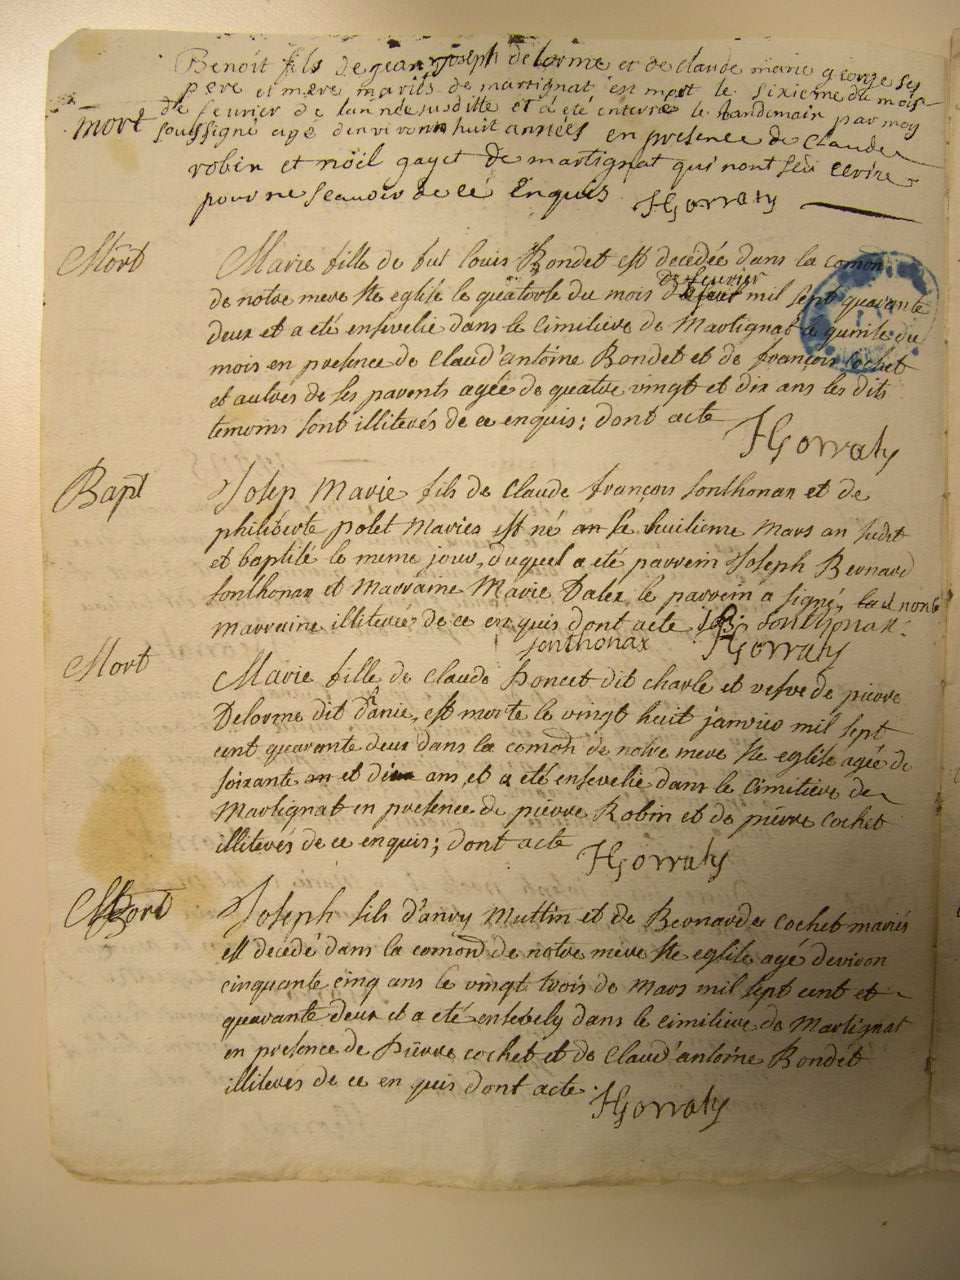 Benoit fils de jean joseph delorme et de claude marie george ses
pere et mere mariés de martignat est mort le sixieme du mois
de feurier de lannée susditte et á été enterré le landemain par moy
mort soussigné agé denviron huit années en presence de claude
robin et nöel gayet de martignat qui nont sçu ecrire
pour ne scauoir de cé Enquis HGorraty
Mort Marie fille de fut louis Bondet est decedée dans la comon
de notre mere ste eglise le quatorse du mois de feurier mil sept quarante
deux et a eté enseuelie dans le cimitiere de Martignat le quinse du
mois en presence de Claud'antoine Bondet et de françois Cochet
et autres de ses parents agée de quatre vingt et dix ans les dits
temoins sont illiterés de ce enquis: dont acte HGorraty
Bapt Josep Marie fils de Claude françois sonthonax et de
philiberte polet Mariés est né le huitieme Mars an sudit
et baptisé le meme jour, duquel a eté parrein Joseph Bernard
sonthonax et Marraine Marie Dalex le parrein a signé, non la
Marraine illiterée de ce enquis dont acte sonthonax
sonthonax HGorraty
Mort Marie fille de Claude Poncet dit charle et vefve de pierre
Delorme dit Danie, est morte le vingt huit janvier mil sept
cent quarante deux dans la comon de notre mere ste eglise agée de
soixante et dix ans, et a eté enseuelie dans le Cimitiere de
Martignat en presence de pierre Robin et de pierre Cochet
illiterés de ce enquis; dont acte HGorraty
Mort Joseph fils d'anry Muttin et de Bernarde Cochet mariés
est decedé dans la comond de notre mere ste eglise agé deviron
cinquante cinq ans le vingt trois de Mars mil sept cent et
quarante deux et a eté ensebely dans le cimitiere de Martignat
en presence de Pierre cochet et de Claud'antoine Bondet
illiterés de ce en quis dont acte. HGorraty